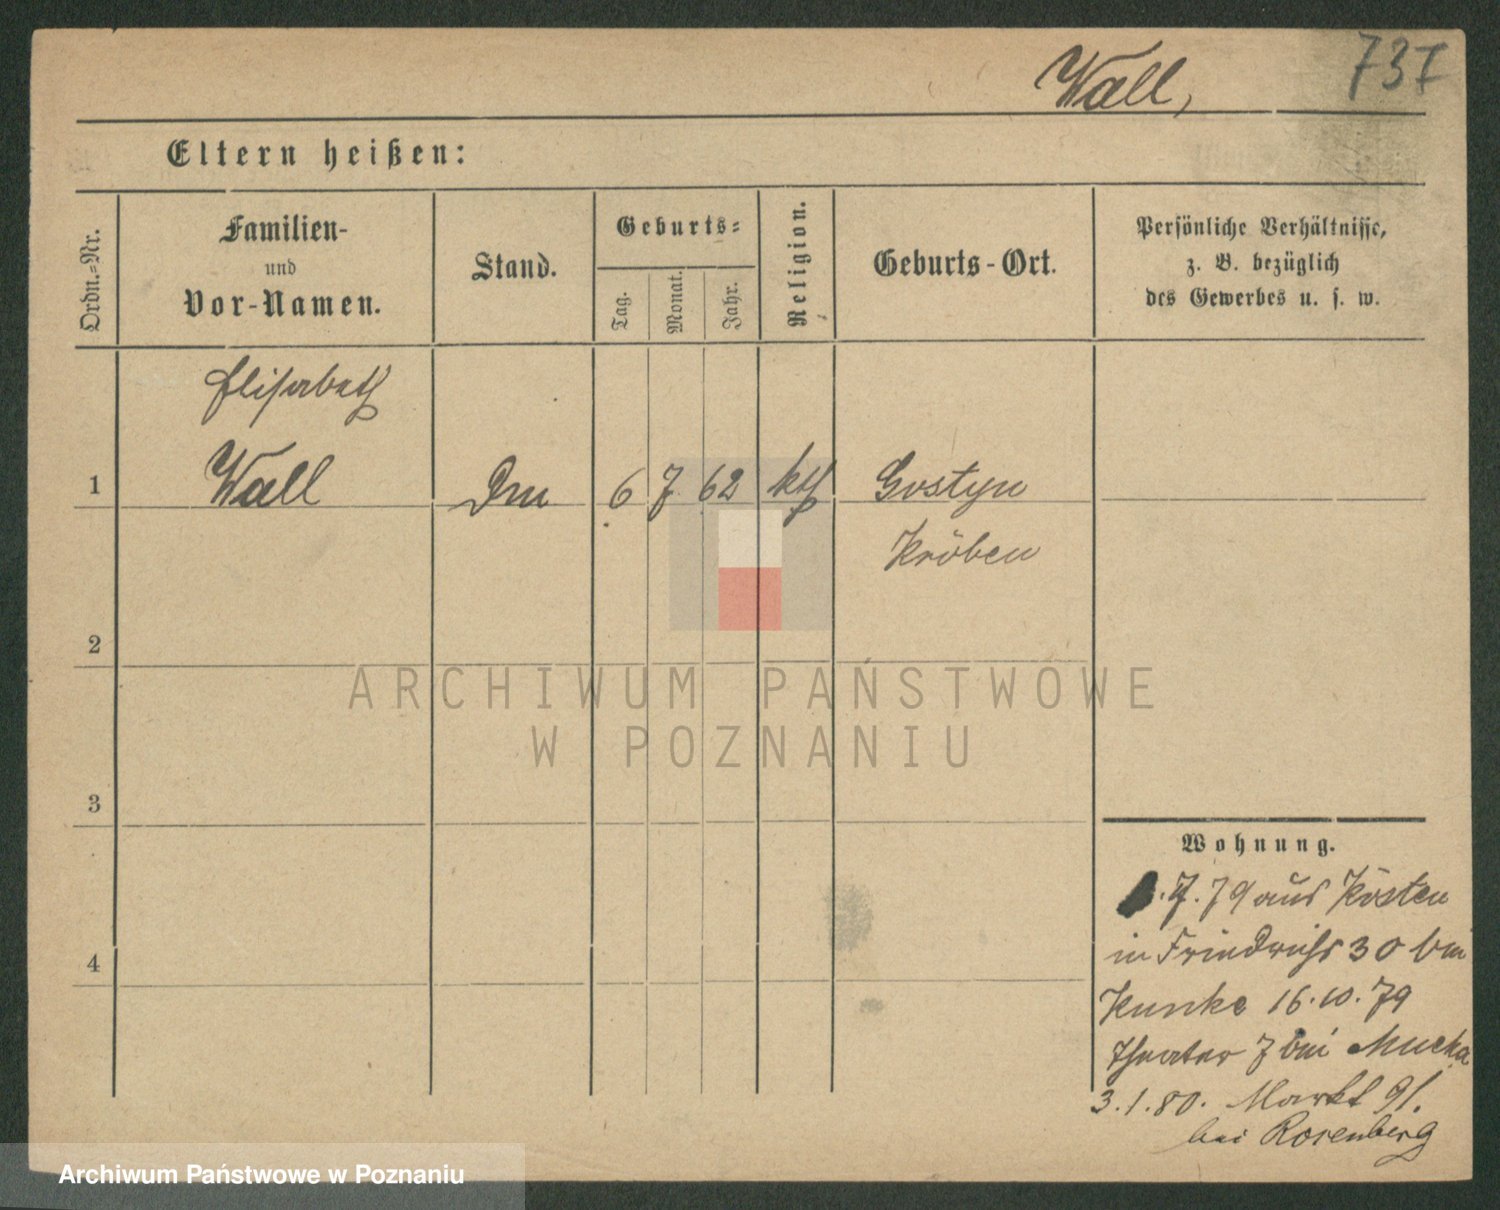 Wall,
737
Eltern heißen:
Ordn.=Nr.
Familien-
und
Vor-Namen.
Stand.
Geburts=
Tag.
Monat.
Jahr.
Religion.
Geburts-Ort.
Persönliche Verhältnisse,
z. B. bezüglich
des Gewerbes u. s. w.
Elisabeth
1 Wall 6 7 62 kth Gostyn
Kröben
2
3
4
Wohnung.
7. 79 aus Kosten
in Friedrichs 30 bei
Kunke 16.10.79
Theater 7 bei Mucha
3.1.80. Markt 91.
bei Rosenberg
ARCHIWUM PAŃSTWOWE
W POZNANIU
Archiwum Państwowe w Poznaniu